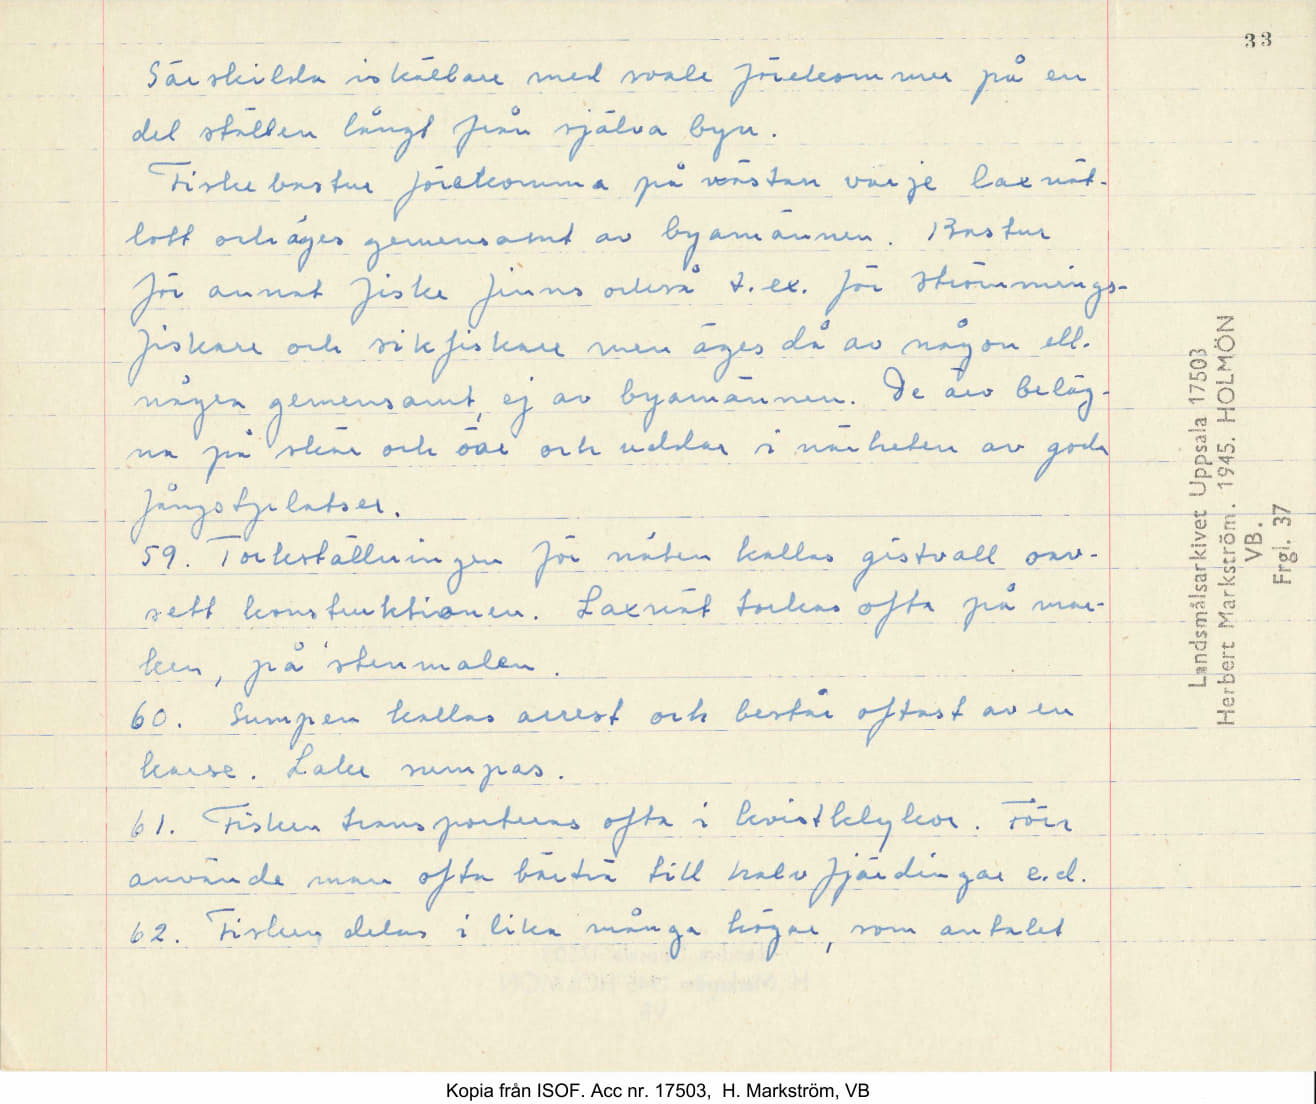 33
Särskilda iskällare med svale förekommer på en
del ställen långt från själva byn.
Fiskebastur förekomma på nästan varje laxnät-
lott och äges gemensamt av byamännen. Bastur
för annat fiske finns också t.ex. för strömmings-
fiskare och sikfiskare men äges då av någon ell.
några gemensamt, ej av byamännen. De äro beläg-
na på skär och öar och uddar i närheten av goda
fångstplatser.
59. Torkställningen för näten kallas gistvall oav-
sett konstruktionen. Laxnät torkas ofta på mar-
ken, på stenmalen.
60. Sumpen kallas arrest och består oftast av en
karse. Lake sumpas.
61. Fisken transporteras ofta i kvistklykor. Förr
använde man ofta bärträ till halvfjärdingar e.d.
62. Fisken delas i lika många högar, som antalet
Landsmålsarkivet Uppsala 17503
Herbert Markström. 1945. HOLMÖN
VB.
Frgl. 37
Kopia från ISOF. Acc nr. 17503, H. Markström, VB